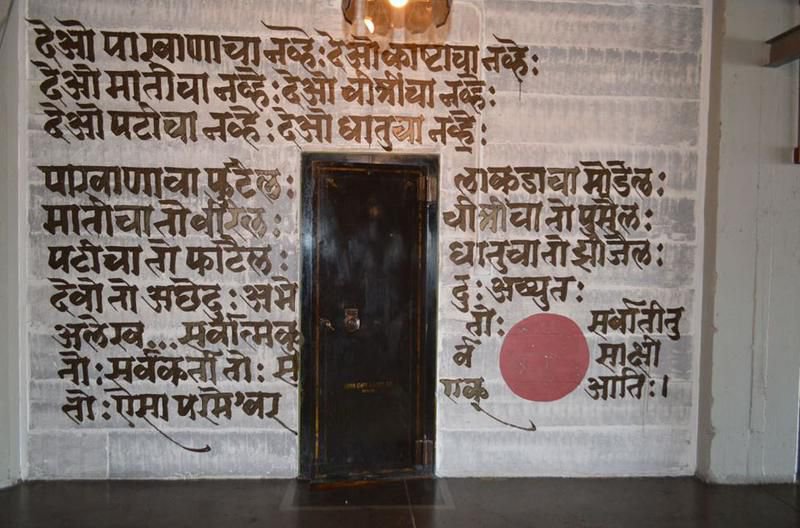 देओ पाखाणाचा नव्हे : देओ काष्टाचा नव्हे :
देओ मातीचा नव्हे : देओ चीत्रींचा नव्हे :
देओ पटीचा नव्हे : देओ धातुचा नव्हे :
पाखाणाचा फुटैल : लाकडाचा मोडैल :
मातीचा तो वीरैल : चीत्रींचा तो पुसैल :
पटीचा तो फाटैल : धातुचा तो झीजैल :
देवो तो अछेदु : अभेदु : अच्युत :
अलेख... सर्वात्मक तो : सर्वातीतु
तो : सर्वकर्ता तो : सर्व साक्षी
तो : ऐसा परमेश्वर एक् आति : ।